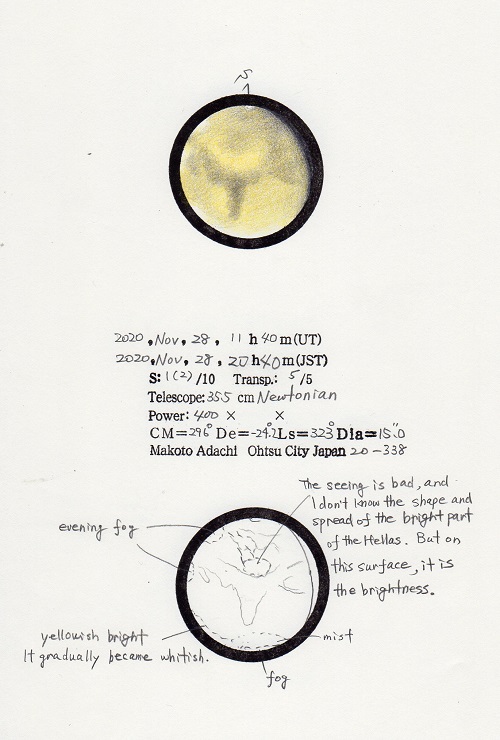 S
2020, Nov, 28, 11 h 40 m (UT)
2020, Nov, 28, 20 h 40 m (JST)
S: 1(2) /10 Transp.: 5 /5
Telescope: 355 cm Newtonian
Power: 400 × ×
CM=296° De=-24.2 Ls=323° Dia=15.″0
Makoto Adachi Ohtsu City Japan 20-338
The seeing is bad, and
I don't know the shape and
spread of the bright part
of the Hellas. But on
this surface, it is
the brightness.
evening fog
yellowish bright
It gradually became whitish.
mist
fog